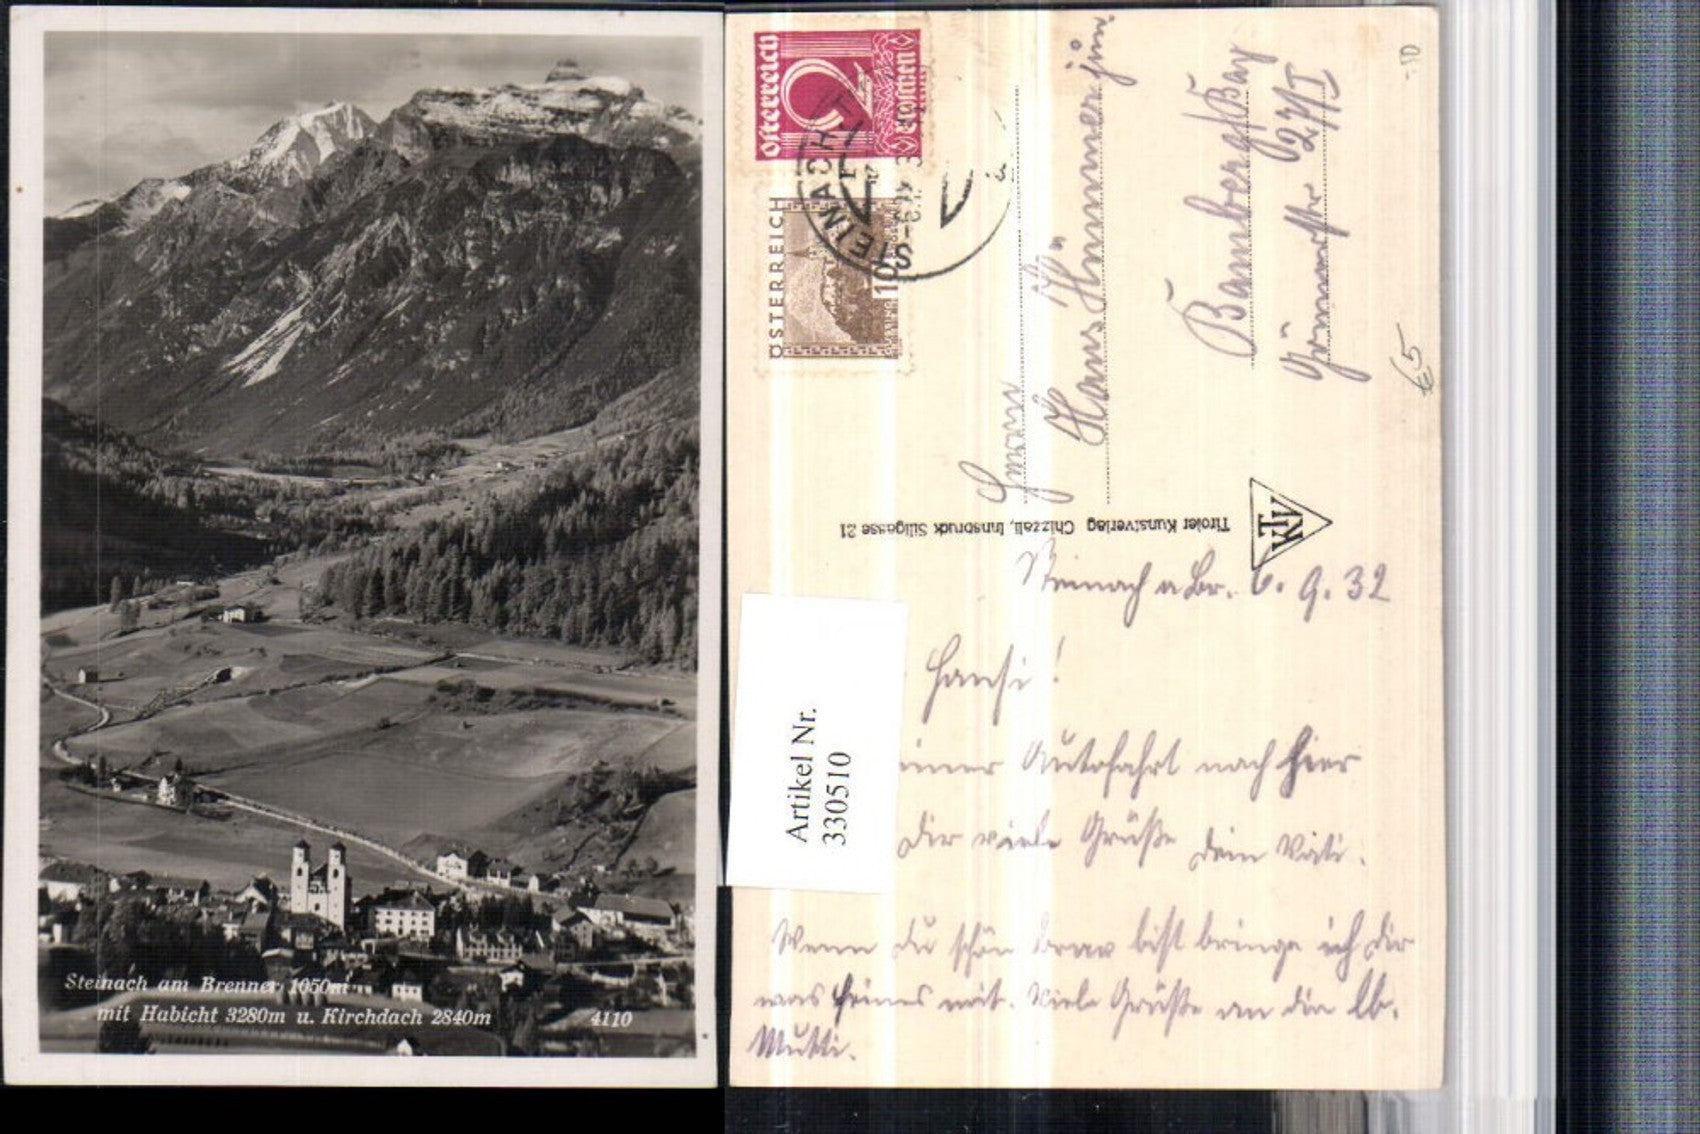 Steinach am Brenner 1050m
mit Habicht 3280m u. Kirchdach 2840m
4110
Österreich
2
Groschen
ÖSTERREICH
10
STEINACH
Herrn
Hans Hümmer jun.
Bamberg/Bay
Artikel Nr.
330510
Tiroler Kunstverlag Chizzali, Innsbruck Sillgasse 21
Steinach a Br. 6. 9. 32
Hansi!
einer Autofahrt nach hier
Dir viele Grüße Dein Vati.
Wenn Du schön brav bist bringe ich Dir
was feines mit. Viele Grüße an die lb.
Mutti.
€5